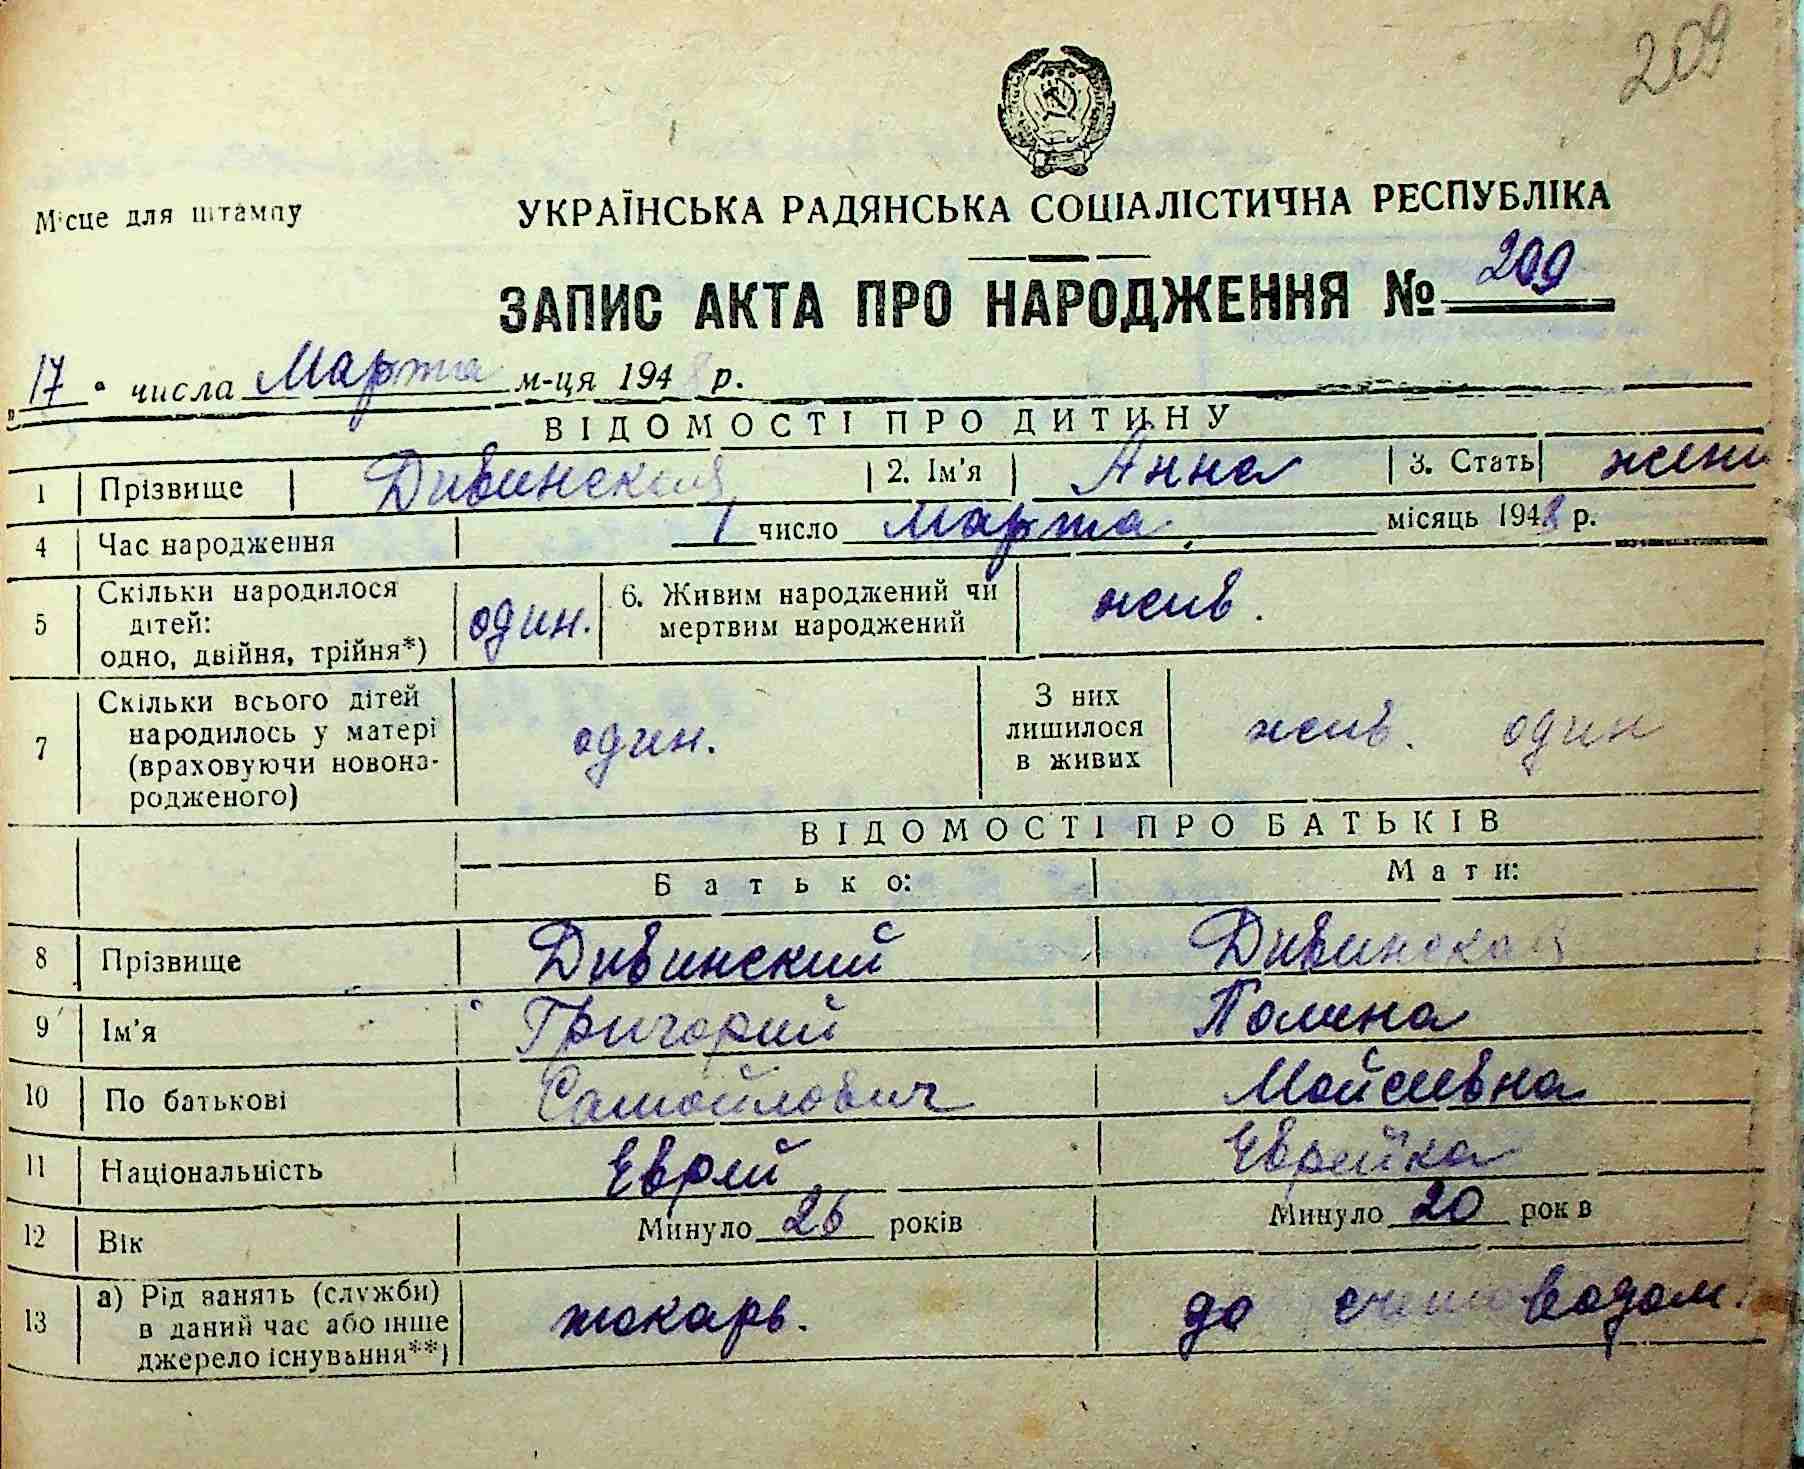 209
Місце для штампу
УКРАЇНСЬКА РАДЯНСЬКА СОЦІАЛІСТИЧНА РЕСПУБЛІКА
ЗАПИС АКТА ПРО НАРОДЖЕННЯ № 209
17 числа Марта м-ця 1948 р.
ВІДОМОСТІ ПРО ДИТИНУ
1 Прізвище Дивинская 2. Ім'я Анна 3. Стать жен
4 Час народження 1 число Марта місяць 1948 р.
5 Скільки народилося дітей: одно, двійня, трійня*) один. 6. Живим народжений чи мертвим народжений жив.
7 Скільки всього дітей народилось у матері (враховуючи новонародженого) один. З них лишилося в живих жив. один
ВІДОМОСТІ ПРО БАТЬКІВ
Батько: Мати:
8 Прізвище Дивинский Дивинская
9 Ім'я Григорий Полина
10 По батькові Самойлович Мойсеевна
11 Національність Еврей Еврейка
12 Вік Минуло 26 років Минуло 20 рок в
13 а) Рід занять (служби) в даний час або інше джерело існування**) токарь. до счетоводом.